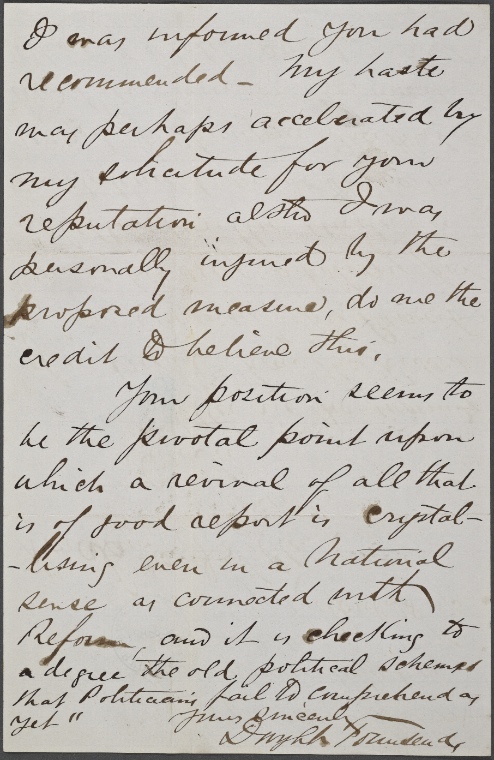 I was informed you had
recommended - My haste
was perhaps accelerated by
my solicitude for your
reputation altho I was
personally injured by the
proposed measure, do me the
credit to believe this.
Your position seems to
be the pivotal point upon
which a revival of all that
is of good report is crystal-
-lising even in a National
sense as connected with
Reform, and it is checking to
a degree the old political schemes
that Politicians fail to comprehend as
yet"
Yours Sincerely
Dwight Townsend